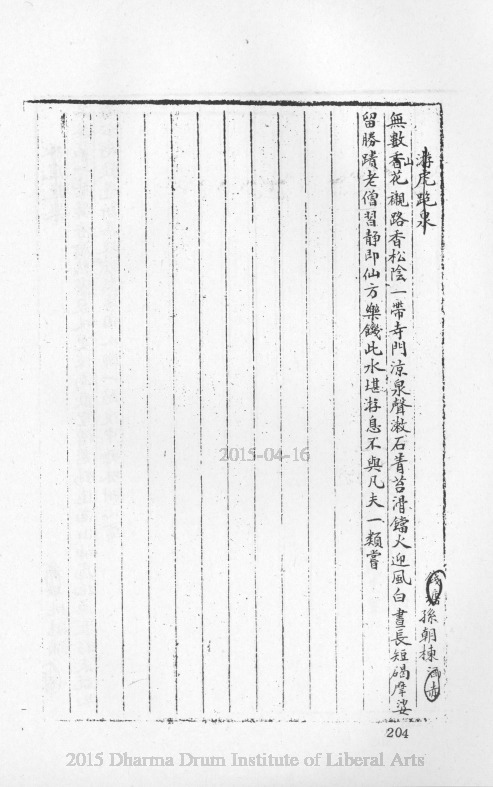 游虎跑泉
孫朝棟
無數山花襯路香松陰一帶寺門涼泉聲漱石青苔滑鐺火迎風白晝長短碣摩娑
留勝蹟老僧習靜即仙方樂饑此水堪游息不與凡夫一類嘗
204
2015-04-16
2015 Dharma Drum Institute of Liberal Arts